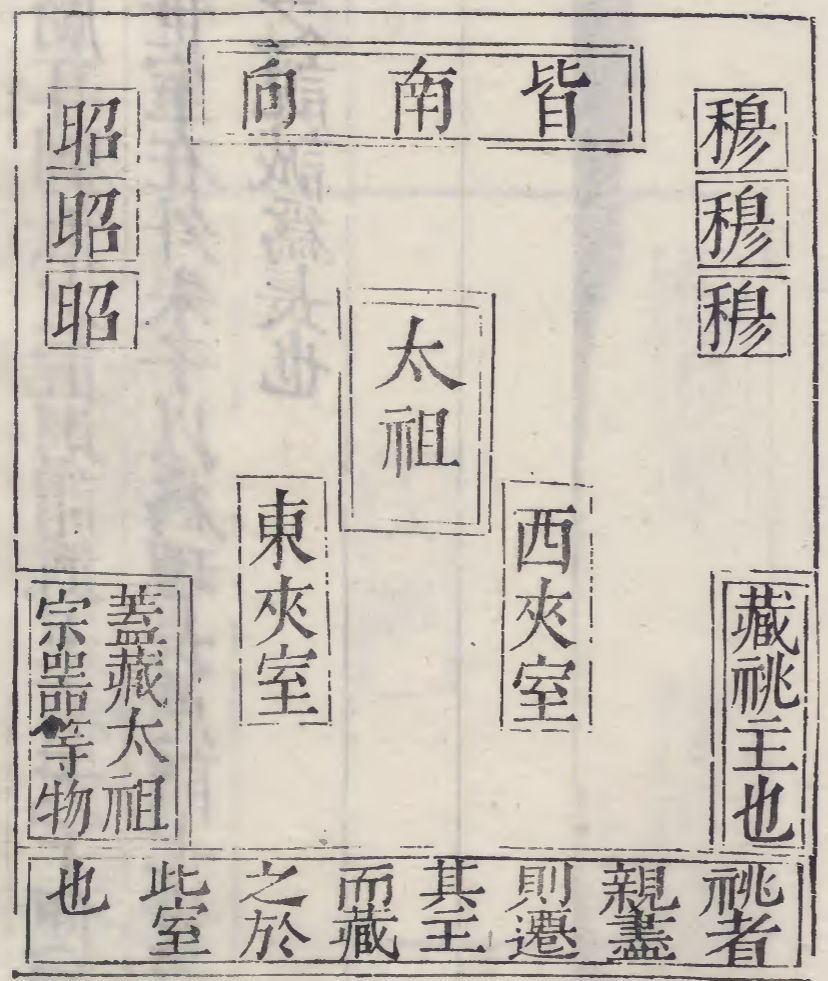 皆南向
穆
穆
穆
昭
昭
昭
太祖
西夾室
東夾室
藏祧主也
蓋藏太祖
宗噐等物
祧者
親盡
則遷
其主
而藏
之於
此室
也